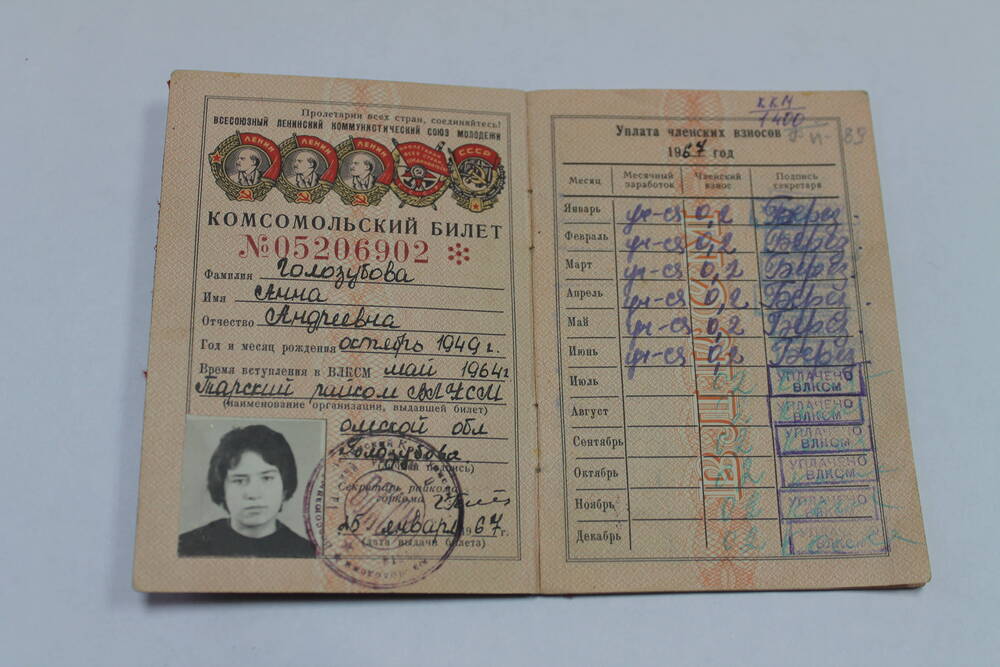 Пролетарии всех стран, соединяйтесь!
ВСЕСОЮЗНЫЙ ЛЕНИНСКИЙ КОММУНИСТИЧЕСКИЙ СОЮЗ МОЛОДЕЖИ
ЛЕНИН ЛЕНИН ЛЕНИН СССР
КОМСОМОЛЬСКИЙ БИЛЕТ
№05206902
Фамилия Голозубова
Имя Анна
Отчество Андреевна
Год и месяц рождения октябрь 1949 г.
Время вступления в ВЛКСМ май 1964 г.
Тарский райком ВЛКСМ
(наименование организации, выдавшей билет)
омской обл
Голозубова
(личная подпись)
Секретарь райкома
горкома
25 января 1967 г.
(дата выдачи билета)
ККМ
1400
Уплата членских взносов
1967 год
Месяц Месячный заработок Членский взнос Подпись секретаря
Январь уч-ся 0,2
Февраль уч-ся 0,2
Март уч-ся 0,2
Апрель уч-ся 0,2
Май уч-ся 0,2
Июнь уч-ся 0,2
Июль УПЛАЧЕНО ВЛКСМ
Август УПЛАЧЕНО ВЛКСМ
Сентябрь УПЛАЧЕНО ВЛКСМ
Октябрь УПЛАЧЕНО ВЛКСМ
Ноябрь УПЛАЧЕНО ВЛКСМ
Декабрь УПЛАЧЕНО ВЛКСМ